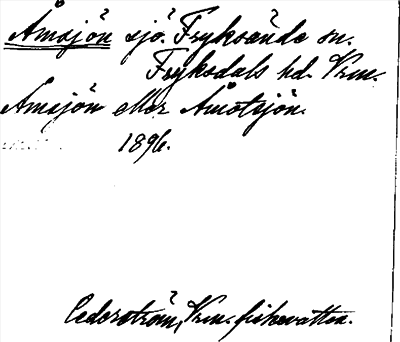 Åmsjön sjö. Fryksände sn.
Fryksdals hd. Vrm.
Åmsjön eller Åmotsjön.
1896.
Cederström, Vrm. fiskevatten.